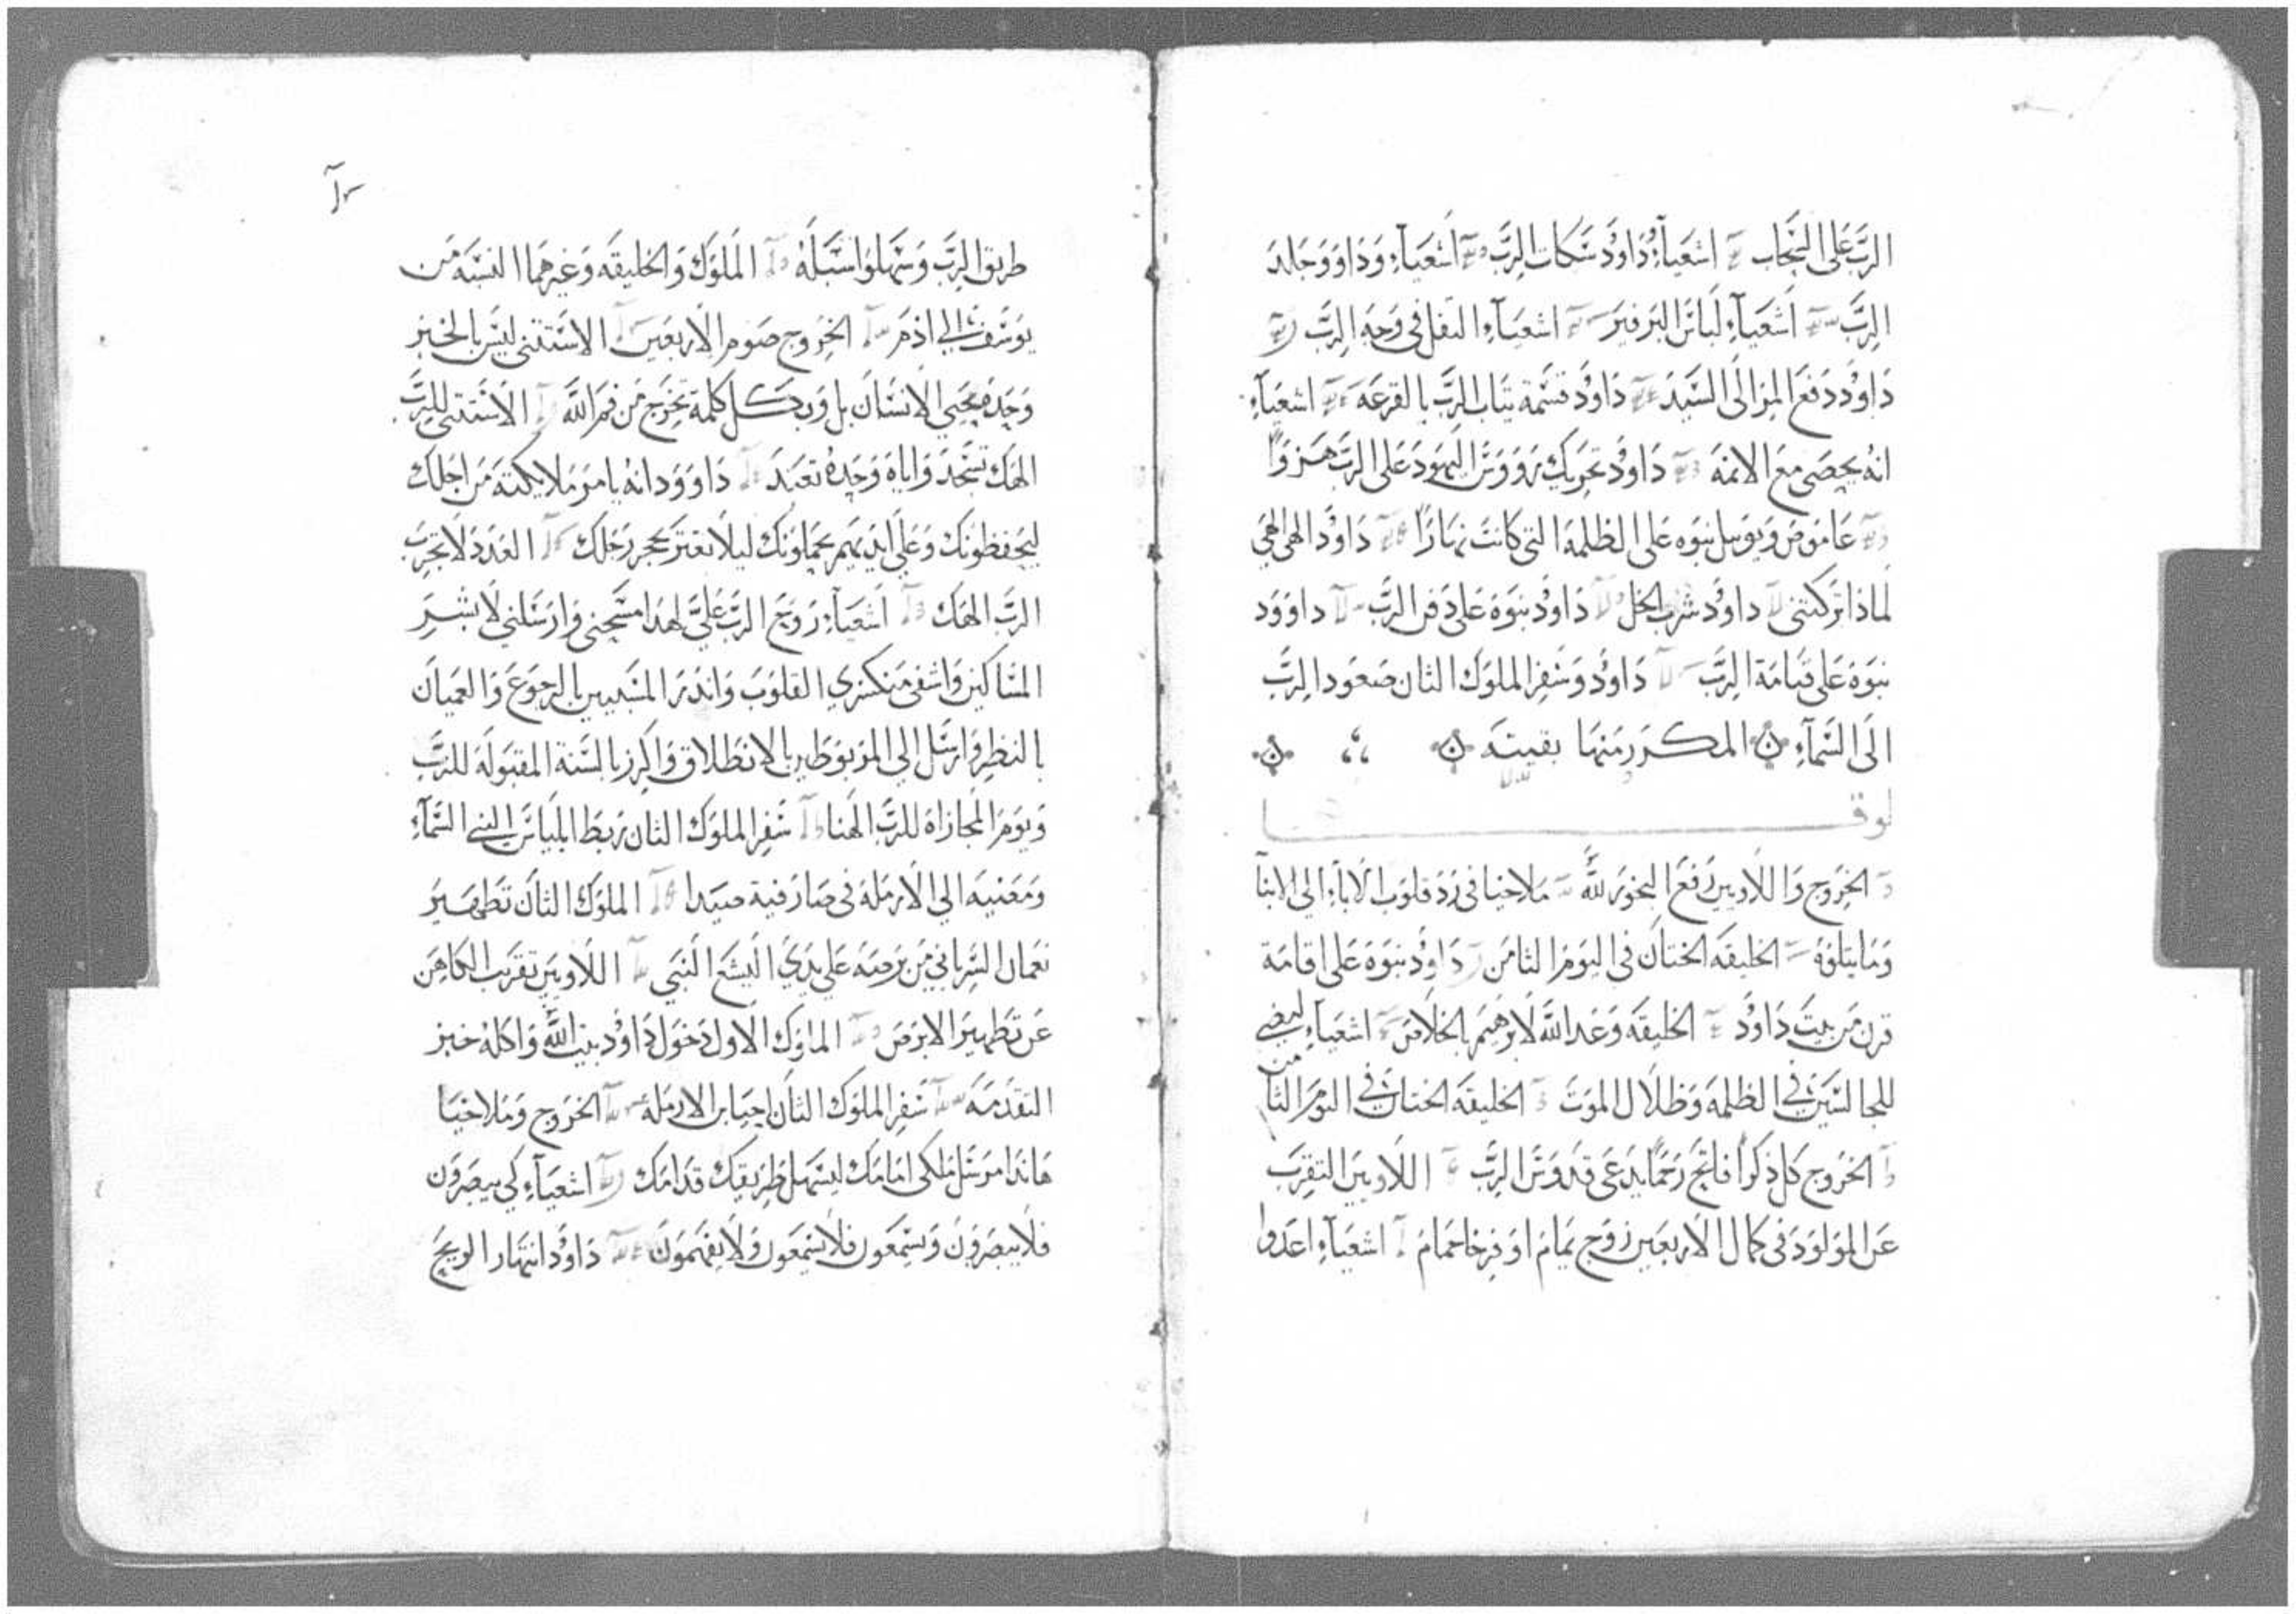 الربَّ علي السَّحاب اشعياءِ وُدَاوُد سَكات الربَّ اشعياءِ ودَاوود وجَلد
الربَّ اشعياءِ لباسَ البرفير اشعياءِ التفل في وَجه الربَّ
دَاوُد دَفعَ المرَ الي السَّيد دَاوُد قسَّمة تياب الربَّ بالقرعَه اشعياءِ
انهُ يحصَي معَ الاثمَه دَاوُد تحريك رووسَ اليهود علي الربَّ هزوًا
عَاموص ويوييل نبوَه علي الظلمهَ التي كانتَ نهارًا دَاوُد الهي الهي
لماذا تركتني داوُد شرب الخل دَاوُد نبوَة علي دَفن الربَّ داووَد
نبوَة علي قيامَة الربَّ دَاوُد وسَفر الملوَك الثان صَعود الربِّ
الَي السَّمآءِ المكرر منها بقيتَه
لوقا
الخرُوج وَاللاويين رَفعَ البخوَر للَّه مَلاخيا في رَدَ قلوب الاباءِ الي الابنآ
وَمَا يتلوَهُ الخليقَه الختان في اليوَمَ الثامَن دَاوُد نبوَة علي اقامَة
قرن مَن بيتَ دَاوُد الخليقَه وَعَد اللَّه لابرهيمَ بالخلاصَ اشعيآءِ ليضي
للجالسَين في الظلمهَ وَظلال الموَتَ الخليقَه الختان في اليوَمَ الثامن
الخرُوج كل ذكرًا فاتح رَحمًا يدَعَي قدَوسَ الربَّ اللاويين التقرب
عَن الموَلوَدَ في كمال الاربعَين زوَج يمامَ اوَ فرخا حمَامَ اشعيآءِ اعَدوا
طريق الربَّ وَسَهلوا سُبلهُ الملوَك وَالخليقَه وَغيرهَما النسَبه مَن
يوَسَف الي اذمَ الخرُوج صَوم الاربعَين الاستثني ليسَ بالخبز
وَحدَه يحيي الانسَان بل وَبكل كلمة تخرجَ مَن فمَ اللَّه الاسَتثني للربَّ
الهَك تسَجَدَ وَاياه وَحدَهُ تعَبدَ دَاووَد انهُ يامرَ مَلايكتهَ مَن اجلك
ليحفظوَنك وَعَلي ايديهمَ يحمَلوَنك ليلا تعَثر بحجر رَجلك العَدَدَ لا تجرب
الربَّ الهَك اشعيآءِ رَوَح الربَّ عَليَّ لهَذا مسَحني وَارسَلني لابشرَ
المسَاكين وَاشفي مَنكسَري القلوَبَ وَانذرَ المسَبيين بالرجوَعَ وَالعَميان
بالنظر وَارسَل الي المرَبوَطين بالانطَلاق وَاكرز بالسَّنة المقبوَلَة للربَّ
وَيوَمَ المجازاة للربَّ الهَنا سَفر الملوَك الثان ربَط ايلياسَ النبي السَّمآءِ
وَمَعَنيه الي الارمَلة في صَارفية صيَدا الملوَك الثان تطَهيرَ
نعَمان السَّرياني مَن برصَه عَلي يدَي اليشَعَ النبَي اللاويين تقرَب الكاهَن
عَن تطَهير الابرصَ الملوَك الاول دَخوَل دَاوُد بيت اللَّه وَاكلهُ خبز
التقدَمَه سَفر الملوَك الثان احيَا بن الارمَله الخرَوج وَمَلاخيَا
هَانذا مرَسَل مَلاكي امَامَك ليسَهل طَريقك قدَامَك اشعيآءِ كي يبصَروَن
فلا يبصَروَنَ وَيسَمعَون فلا يسَمعَون وَلا يفهَموَن دَاوُد انتهَار الريحَ